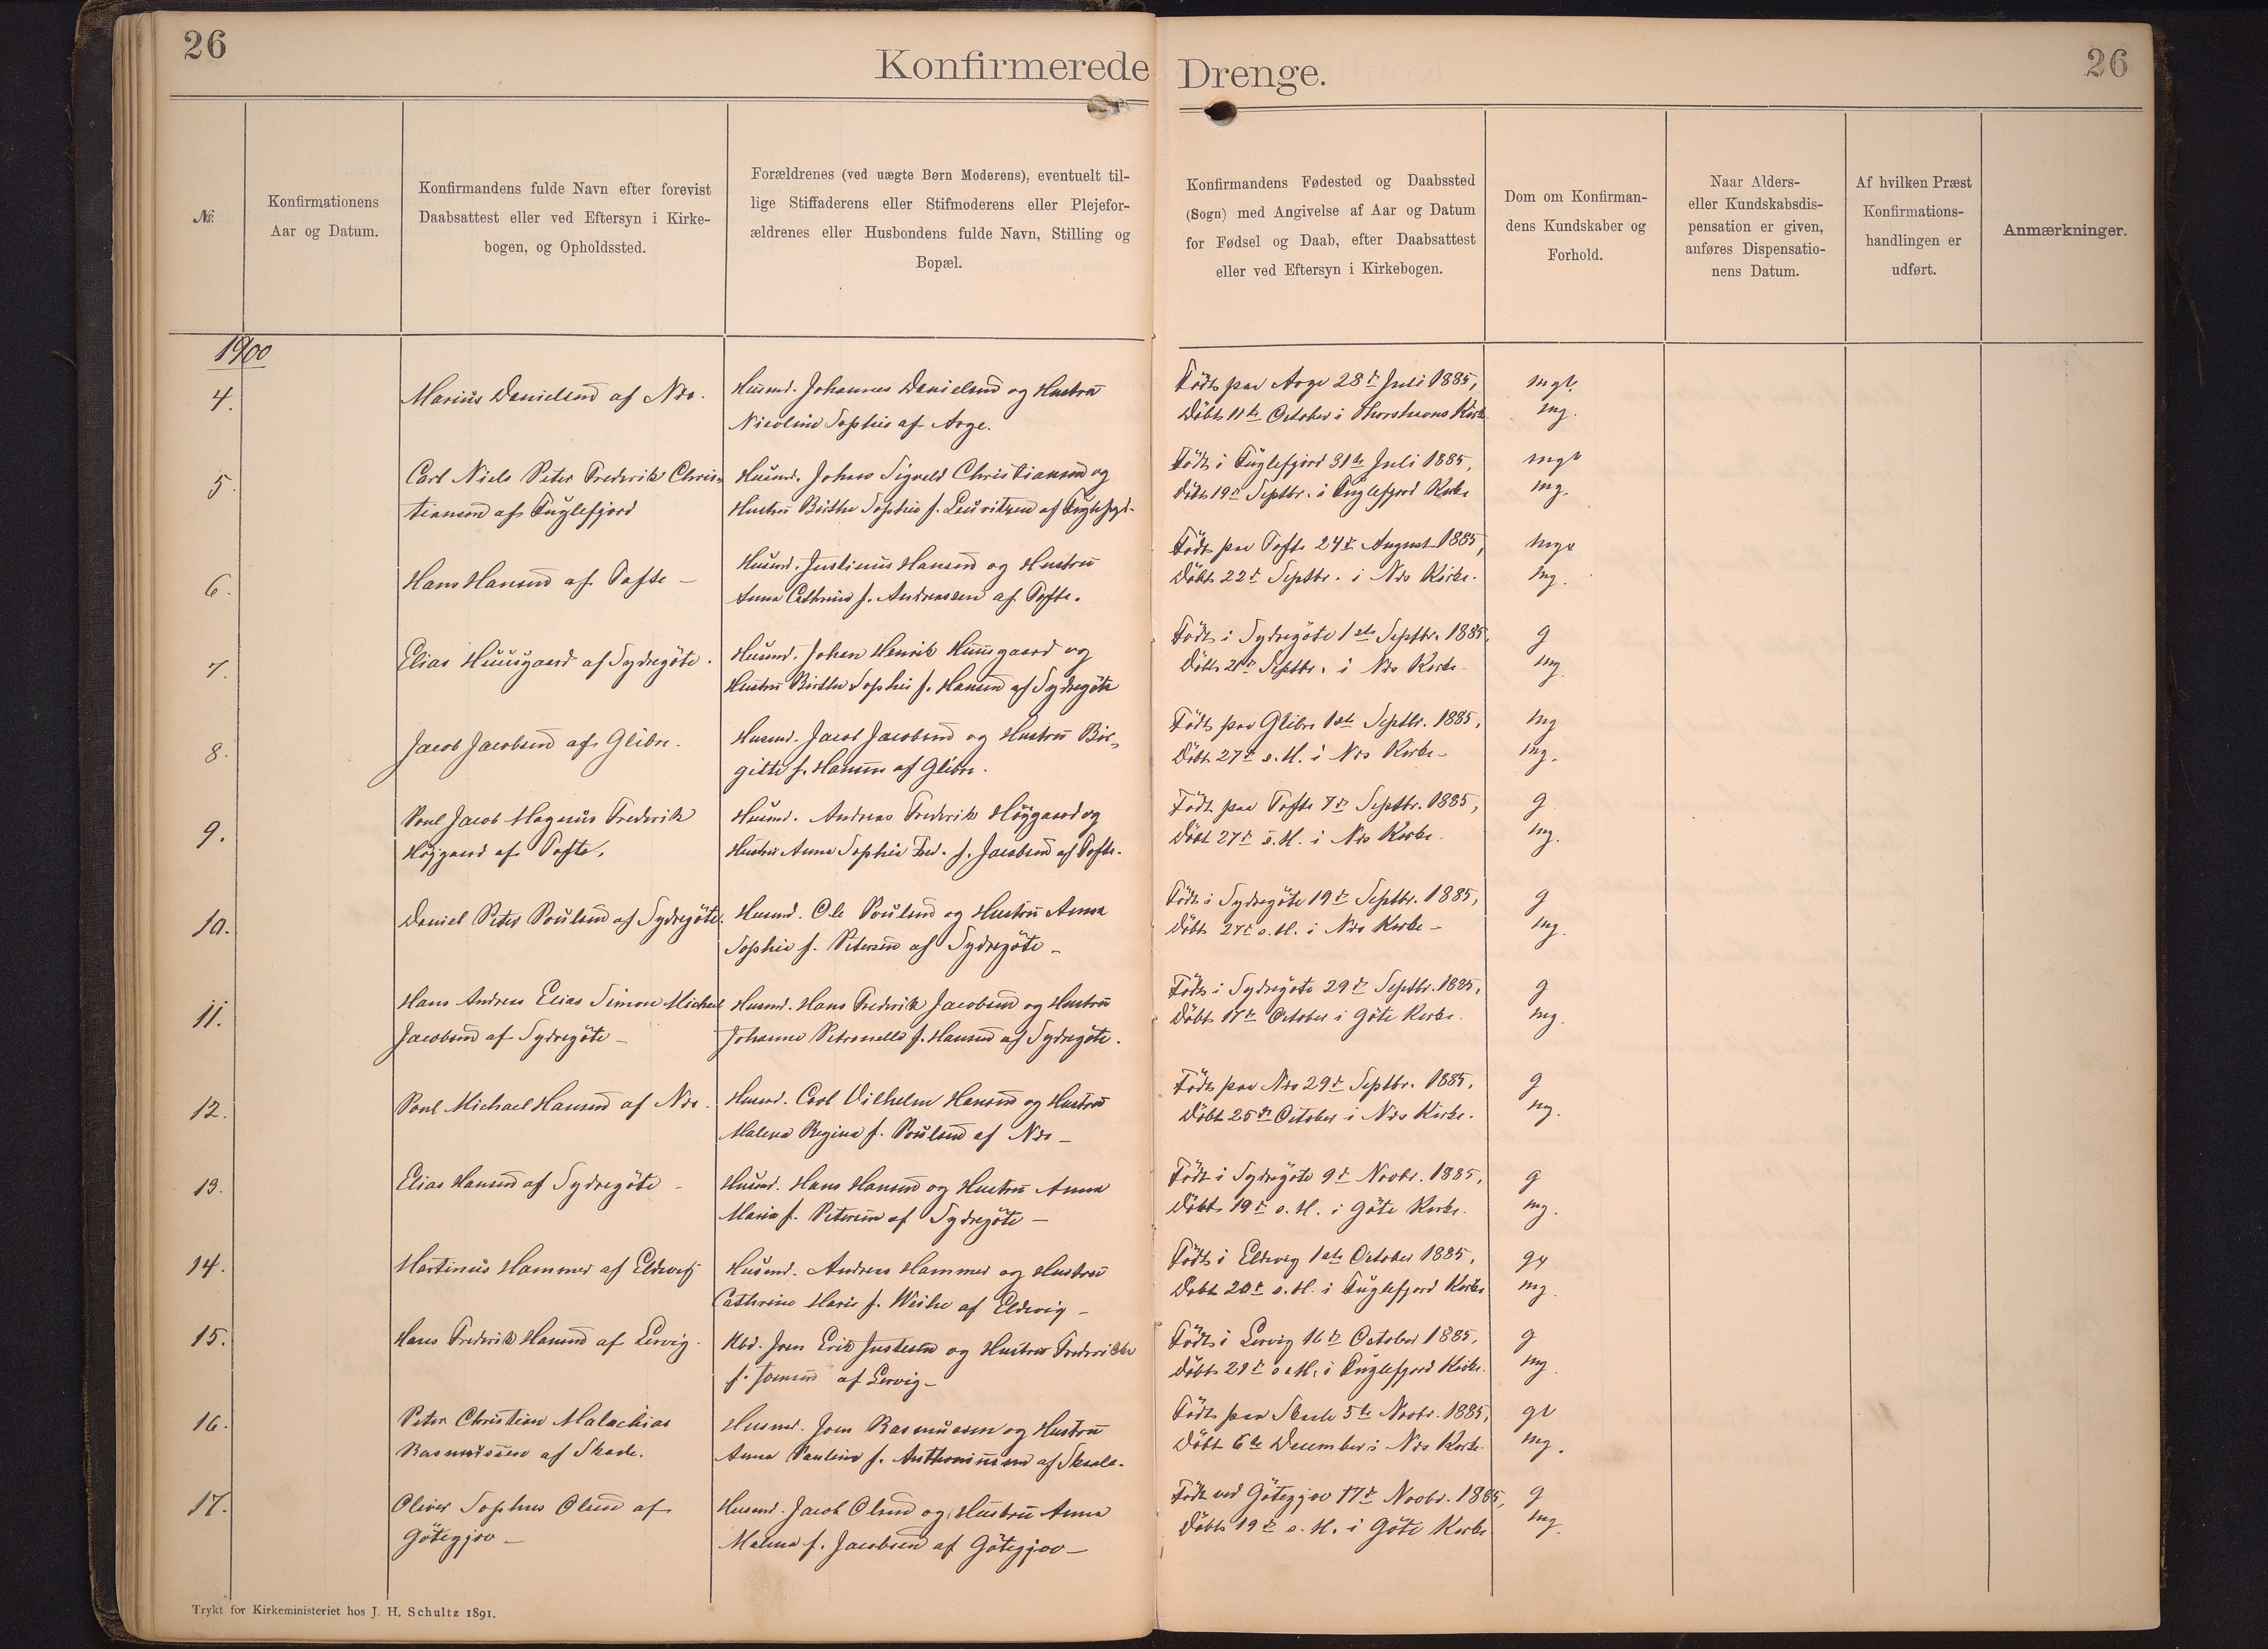 26
Konfirmerede Drenge.
26
№.
Konfirmationens
Aar og Datum.
Konfirmandens fulde Navn efter forevist
Daabsattest eller ved Eftersyn i Kirke-
bogen, og Opholdssted.
Forældrenes (ved uægte Børn Moderens), eventuelt til-
lige Stiffaderens eller Stifmoderens eller Plejefor-
ældrenes eller Husbondens fulde Navn, Stilling og
Bopæl.
Konfirmandens Fødested og Daabssted
(Sogn) med Angivelse af Aar og Datum
for Fødsel og Daab, efter Daabsattest
eller ved Eftersyn i Kirkebogen.
Dom om Konfirman-
dens Kundskaber og
Forhold.
Naar Alders-
eller Kundskabsdis-
pensation er given,
anføres Dispensatio-
nens Datum.
Af hvilken Præst
Konfirmations-
handlingen er
udført.
Anmærkninger.
1900
4.
Marius Danielsen af Næs.
Husmd. Johannes Danielsen og Hustru
Nicoline Sophie af Arge.
Födt paa Arge 28de Juli 1885,
Döbt 11te October i Thorshavns Kirke
mg
5.
Carl Niels Peter Frederik Chris-
tiansen af Fuglefjord
Husmd. Johan Sigvald Christiansen og
Hustru Birthe Sophie f. Lauritzen af Fuglefjd.
Födt i Fuglefjord 31te Juli 1885,
Döbt 19de Septbr. i Fuglefjord Kirke
mg.
6.
Hans Hansen af Tofte –
Husmd. Justinus Hansen og Hustru
Anna Cathrine f. Andreassen af Tofte.
Födt paa Tofte 24de August 1885,
Döbt 22de Septbr. i Næs Kirke.
mg.
7.
Elias Huusgaard af Sydregöte.
Husmd. Johan Henrik Huusgaard og
Hustru Birthe Sophie f. Hansen af Sydregöte
Födt i Sydregöte 1ste Septbr. 1885,
Döbt Septbr. i Næs Kirke
g
mg.
8.
Jacob Jacobsen af Glibre.
Husmd. Jacob Jacobsen og Hustru Bir-
gitte f. Hansen af Glibre.
Födt paa Glibre 1ste Septbr. 1885,
Döbt 27de s. M. i Næs Kirke –
mg
mg.
9.
Poul Jacob Magnus Frederik
Höjgaard af Tofte.
Husmd. Andreas Frederik Höjgaard og
Hustru Anna Sophie Fred. f. Jacobsen af Tofte.
Födt paa Tofte 7de Septbr. 1885,
Döbt 27de s. M. i Næs Kirke.
g
mg.
10.
Daniel Peter Poulsen af Sydregöte.
Husmd. Ole Poulsen og Hustru Anna
Sophie f. Petersen af Sydregöte –
Födt i Sydregöte 19de Septbr. 1885,
Döbt 27de s. M. i Næs Kirke –
g
mg.
11.
Hans Andreas Elias Simon Michael
Jacobsen af Sydregöte –
Husmd. Hans Frederik Jacobsen og Hustru
Johanne Petronelle f. Hansen af Sydregöte.
Födt i Sydregöte 29de Septbr. 1885,
Döbt October i Göte Kirke.
g
mg.
12.
Poul Michael Hansen af Næs.
Husmd. Carl Vilhelm Hansen og Hustru
Malena Regina f. Poulsen af Næs –
Födt paa Næs 29de Septbr. 1885,
Döbt 25de October i Næs Kirke.
g
mg.
13.
Elias Hansen af Sydregöte –
Husmd. Hans Hansen og Hustru Anna
Maria f. Petersen af Sydregöte –
Födt i Sydregöte 9de Novbr. 1885,
Döbt 19de s. M. i Göte Kirke.
g
mg.
14.
Martinus Hammer af Eldevig
Husmd. Andreas Hammer og Hustru
Cathrine Marie f. Weihe af Eldevig –
Födt i Eldevig 1ste October 1885,
Döbt 20de s. M. i Fuglefjord Kirke
mg.
15.
Hans Frederik Hansen af Lervig.
Kbd. Joen Erik Justesen og Hustru Frederikke
f. Joensen af Lervig –
Födt i Lervig 16de October 1885,
Döbt s. M. i Fuglefjord Kirke.
g
mg.
16.
Peter Christian Malachias
Rasmussen af Skaale.
Husmd. Joen Rasmussen og Hustru
Anna Pauline f. Anthoniussen af Skaale.
Födt paa Skaale 5te Novbr. 1885,
Döbt 6te December i Næs Kirke.
mg.
17.
Oliver Sophus Olsen af
Götegjov –
Husmd. Jacob Olsen og Hustru Anna
Malena f. Jacobsen af Götegjov –
Födt ved Götegjov 17de Novbr. 1885,
Döbt 19de s. M. i Göte Kirke.
g
mg.
Trykt for Kirkeministeriet hos J. H. Schultz 1891.